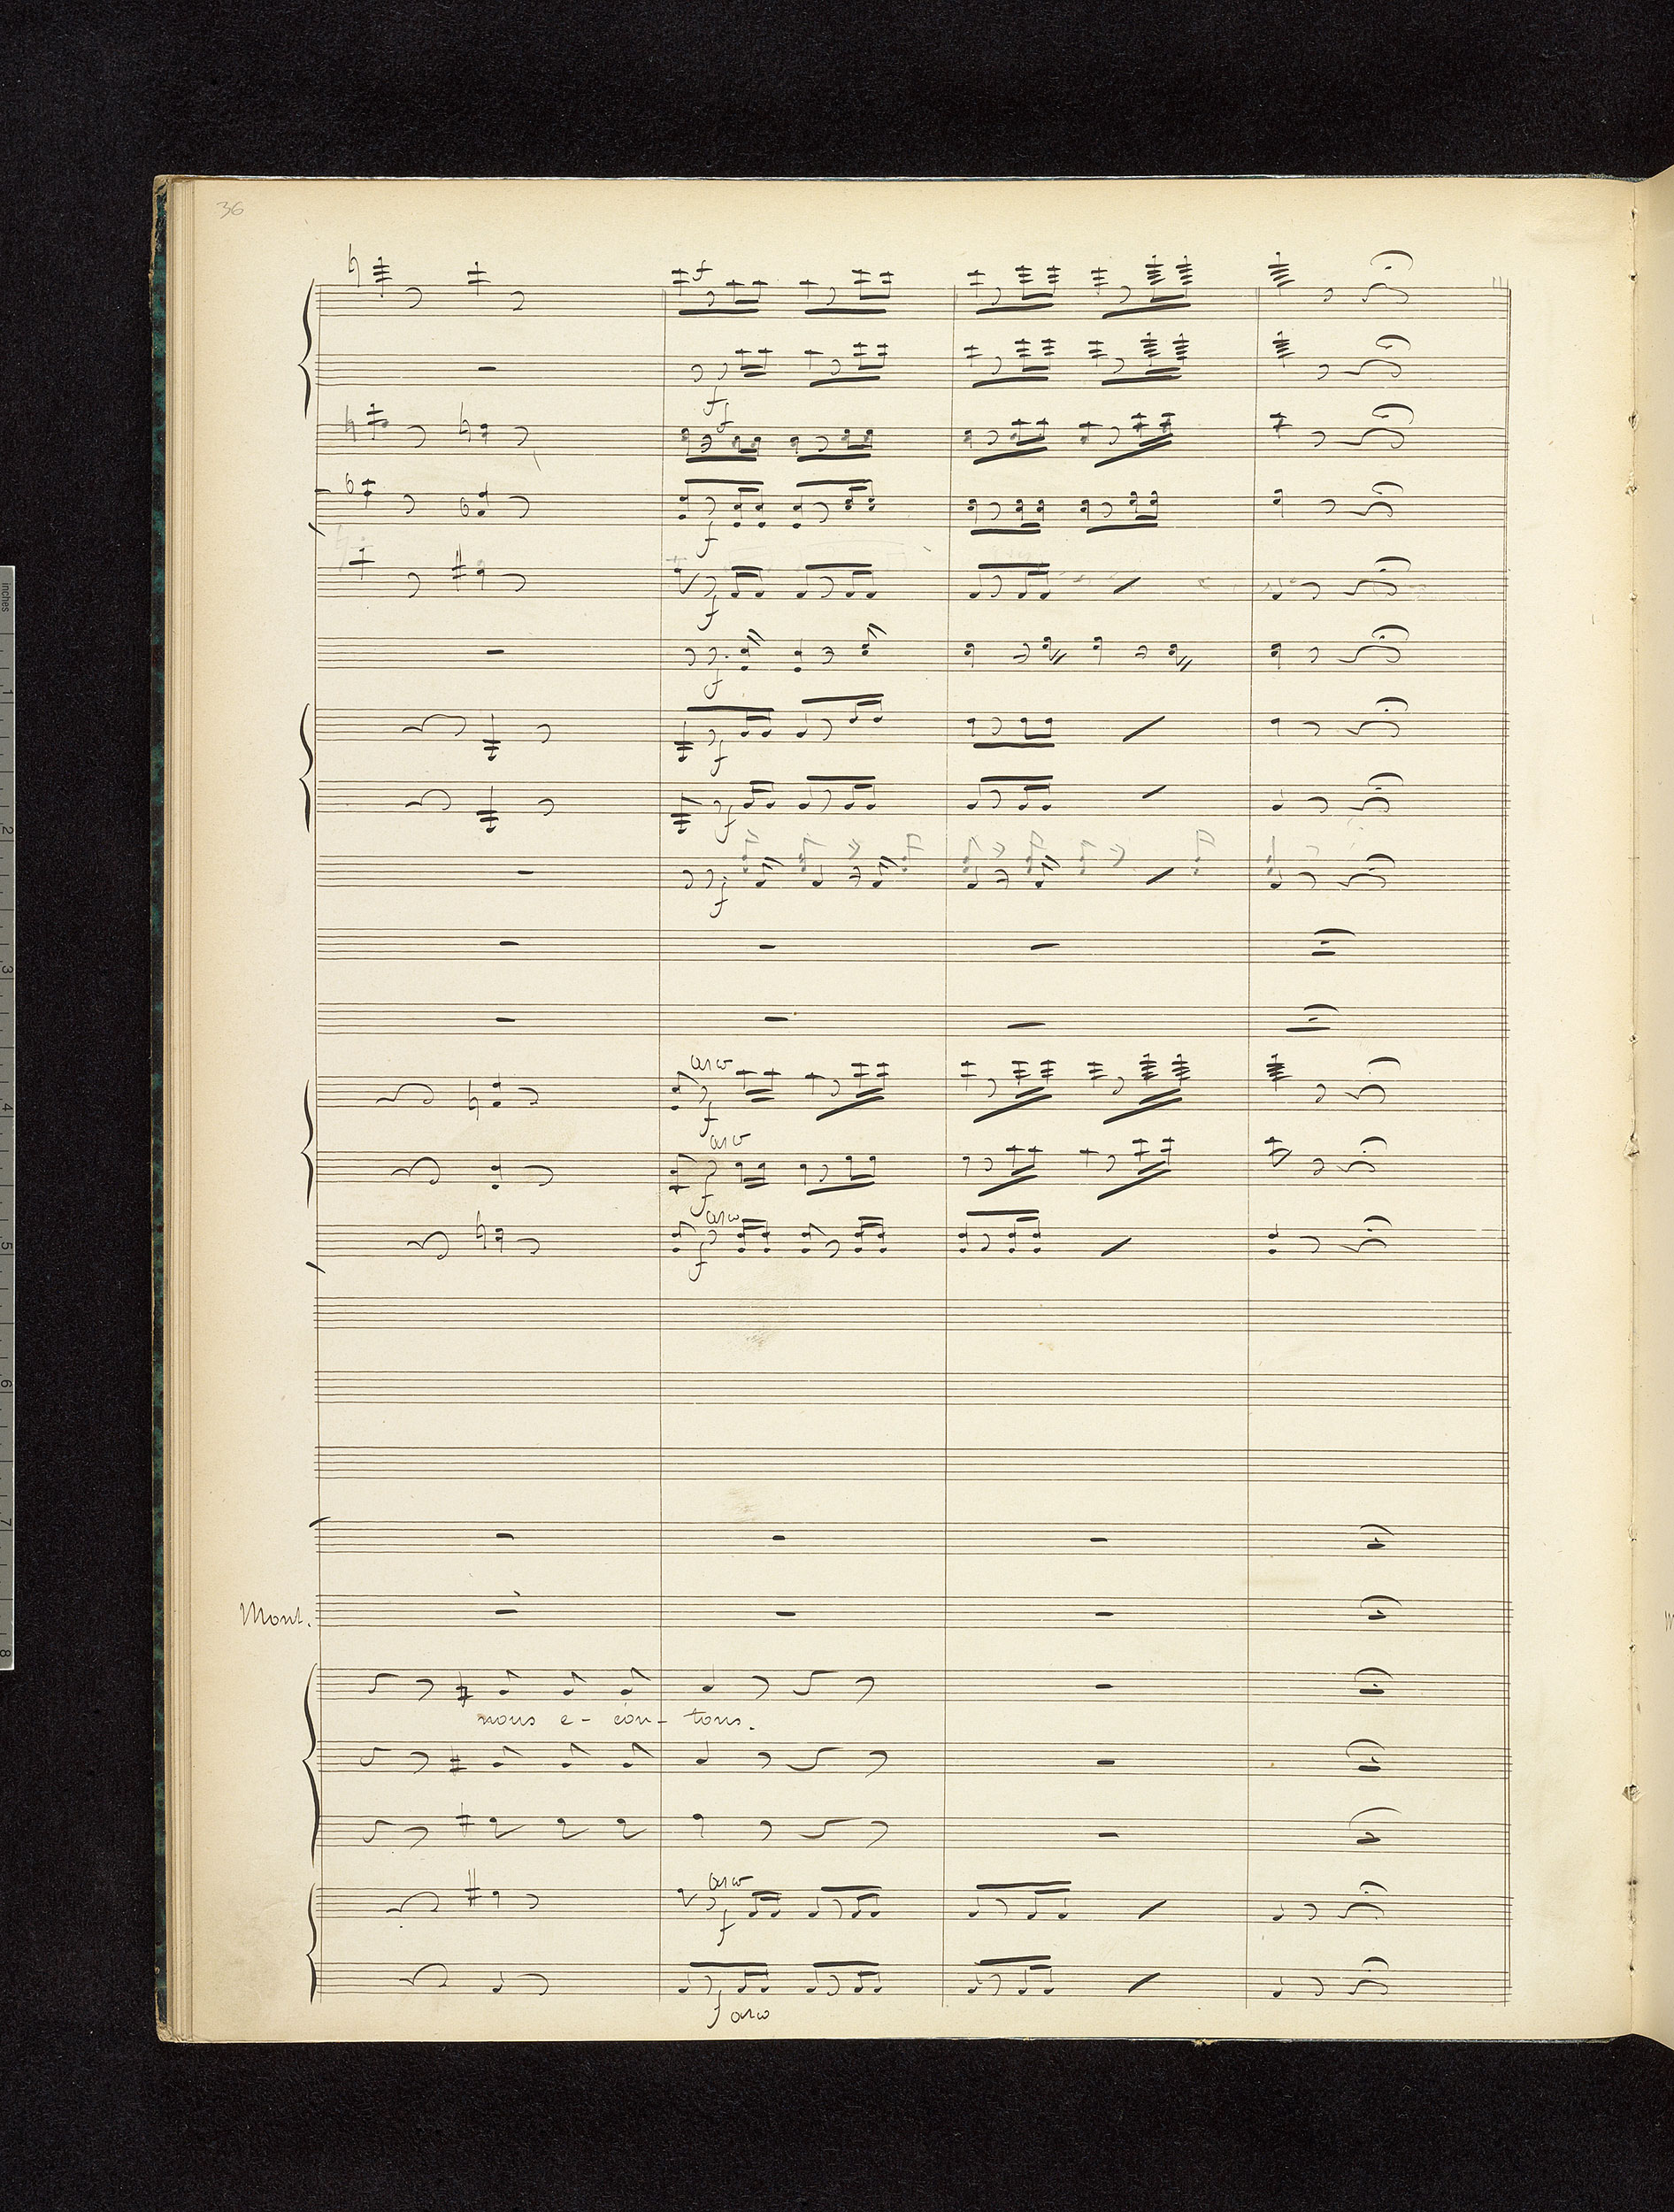 36
f
f
f
f
f
f
f
f
f
arco
f
arco
f
arco
f
Mont.
nous e- cou- tons.
arco
f
f arco
inches
1
2
3
4
5
6
7
8